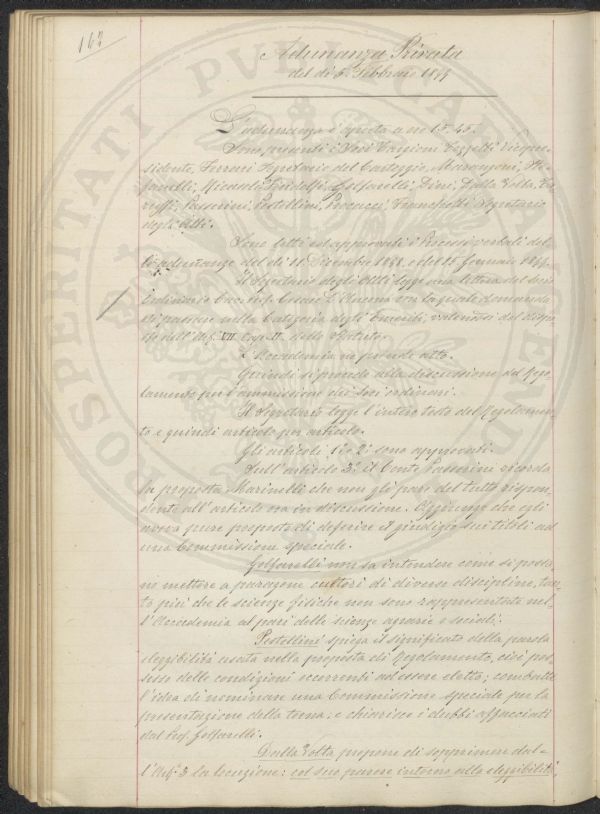 162
Adunanza Privata
del dì 5 Febbraio 1899
L'adunanza è aperta a ore 13.45.
Sono presenti i Soci Targioni Tozzetti Vicepre-
sidente, Ferrari Segretario del Carteggio, Marangoni, Ste-
fanelli, Niccoli, Ridolfi, Golfarelli, Dini, Dalla Volta,
Passerini, Pestellini, Procacci, Franchetti Segretario
degli Atti.
Sono letti ed approvati i Processi verbali del-
le adunanze del dì 11. Dicembre 1898 e del 15 Gennaio 1899.
Il Segretario degli Atti legge una lettera del socio
Ordinario Cav. Prof. con la quale domanda
di passare nella Categoria degli Emeriti, valendosi del dispo-
sto dell'Art. VII Cap. II dello Statuto.
L'Accademia ne prende atto.
Quindi si procede alla discussione del Rego-
lamento per l'ammissione dei Soci ordinari.
Il Segretario legge l'intero testo del Regolamen-
to e quindi articolo per articolo.
Gli articoli 1° e 2° sono approvati.
Sull'articolo 3° il Conte Passerini ricorda
la proposta Marinelli che non gli pare del tutto rispon-
dente all'articolo ora in discussione. Aggiunge che egli
aveva pure proposto di deferire il giudizio sui titoli ad
una Commissione speciale.
Golfarelli non sa intendere come si possa-
no mettere a paragone cultori di diverse discipline, tan-
to più che le scienze fisiche non sono rappresentate nel-
l'Accademia al pari delle scienze agrarie e sociali.
Pestellini spiega il significato della parola
eleggibilità usata nella proposta di Regolamento, cioè pos-
sesso delle condizioni occorrenti ad essere eletto; combatte
l'idea di nominare una Commissione speciale per la
presentazione della terna; e chiarisce i dubbi affacciati
dal Prof. Golfarelli.
Dalla Volta propone di sopprimere dal-
l'Art.° 3 la locuzione: col suo parere intorno alla eleggibilità
PROSPERITATI PVBLICAE AVGENDAE